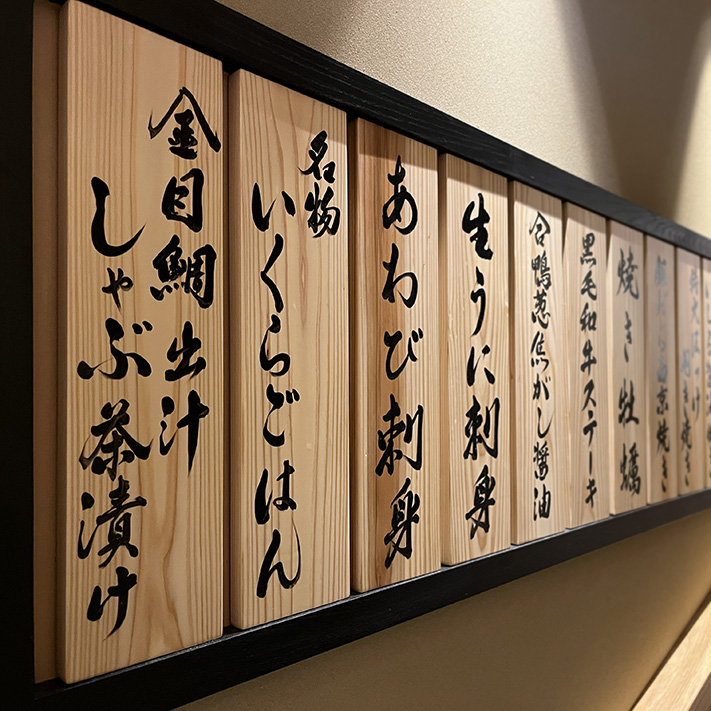 特大ほっけ
銀だら西京焼き
焼き牡蠣
黒毛和牛ステーキ
合鴨葱焦がし醤油
生うに刺身
あわび刺身
名物
いくらごはん
金目鯛出汁
しゃぶ茶漬け